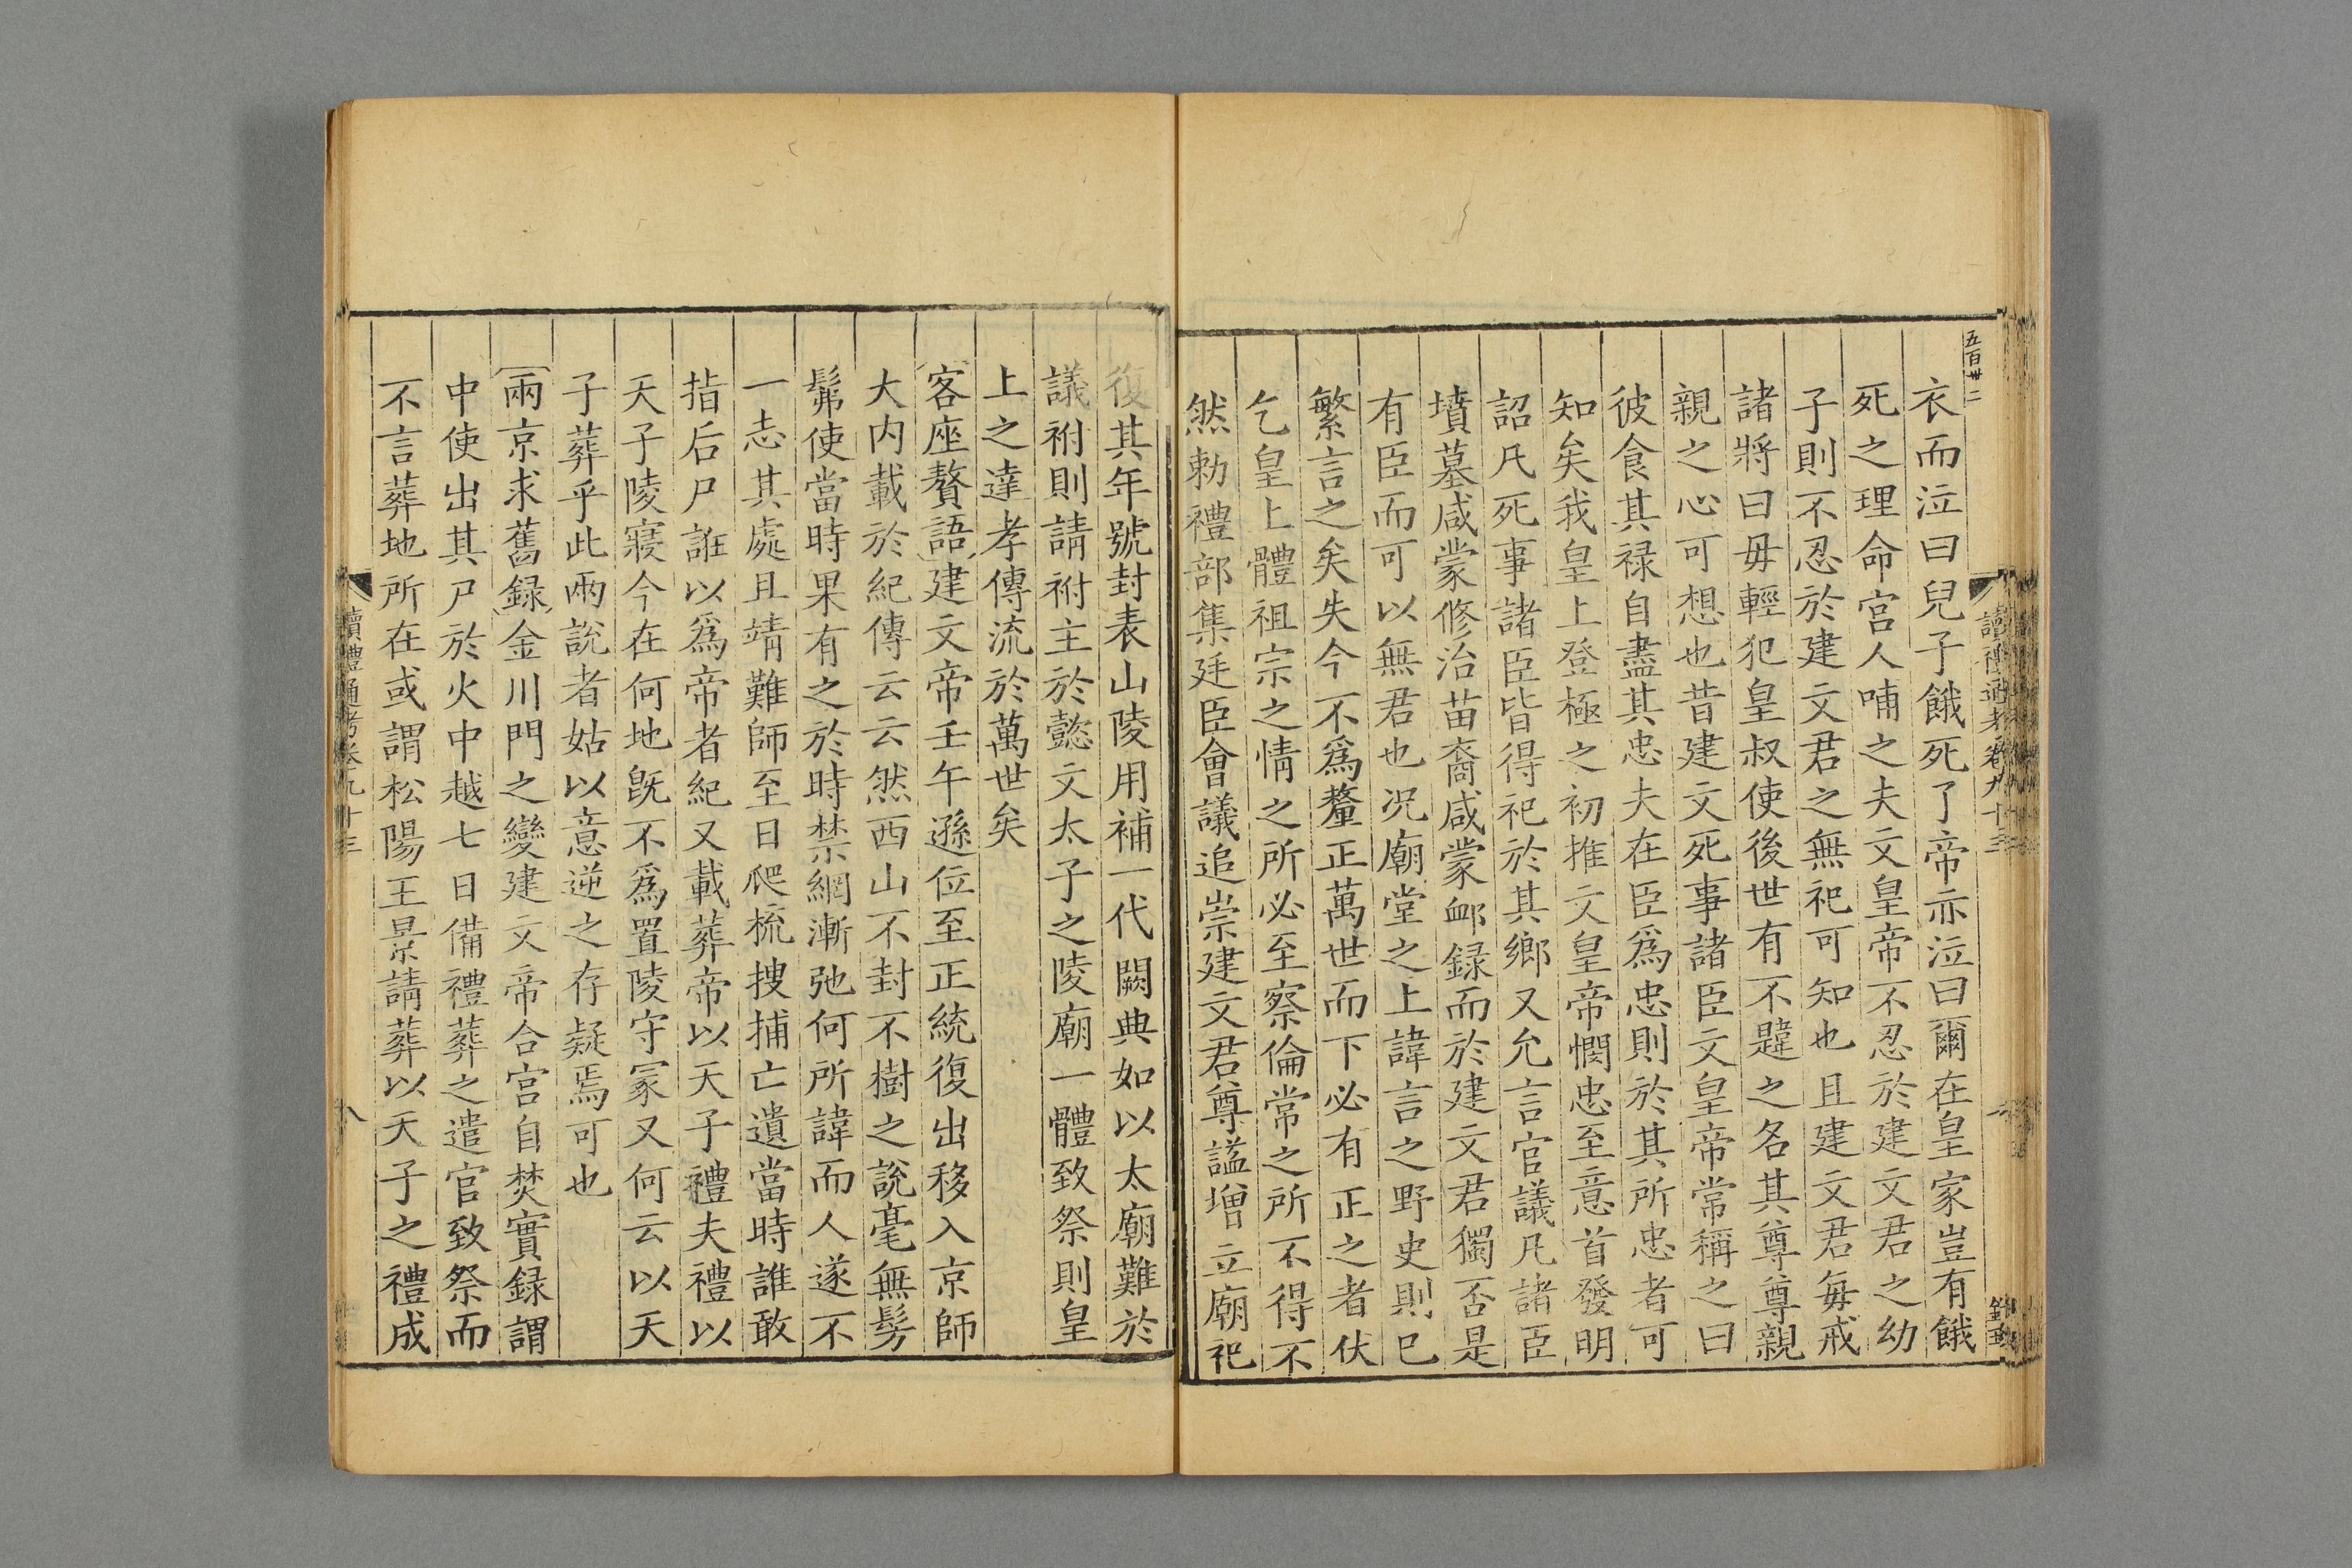 五百廿二
讀禮通考卷九十三
衣而泣曰兒子餓死了帝亦泣曰爾在皇家豈有餓
死之理命宮人哺之夫文皇帝不忍於建文君之幼
子則不忍於建文君之無祀可知也且建文君每戒
諸將曰毋輕犯皇叔使後世有不韙之名其尊尊親
親之心可想也昔建文死事諸臣文皇帝常稱之曰
彼食其禄自盡其忠夫在臣爲忠則於其所忠者可
知矣我皇上登極之初推文皇帝憫忠至意首發明
詔凡死事諸臣皆得祀於其鄉又允言官議凡諸臣
墳墓咸蒙修治苗裔咸蒙䘏録而於建文君獨否是
有臣而可以無君也况廟堂之上諱言之野史則已
繁言之矣失今不爲釐正萬世而下必有正之者伏
乞皇上體祖宗之情之所必至察倫常之所不得不
然勅禮部集廷臣會議追崇建文君尊謚增立廟祀
復其年號封表山陵用補一代闕典如以太廟難於
議祔則請祔主於懿文太子之陵廟一體致祭則皇
上之達孝傳流於萬世矣
客座贅語建文帝壬午遜位至正統復出移入京師
大内載於紀傳云云然西山不封不樹之說毫無髣
髴使當時果有之於時禁網漸弛何所諱而人遂不
一志其處且靖難師至日爬梳搜捕亡遺當時誰敢
指后尸誑以爲帝者紀又載葬帝以天子禮夫禮以
天子陵寢今在何地既不爲置陵守冡又何云以天
子葬乎此兩說者姑以意逆之存疑焉可也
兩京求舊録金川門之變建文帝合宮自焚實録謂
中使出其尸於火中越七日備禮葬之遣官致祭而
不言葬地所在或謂松陽王景請葬以天子之禮成
讀禮通考卷九十三
八